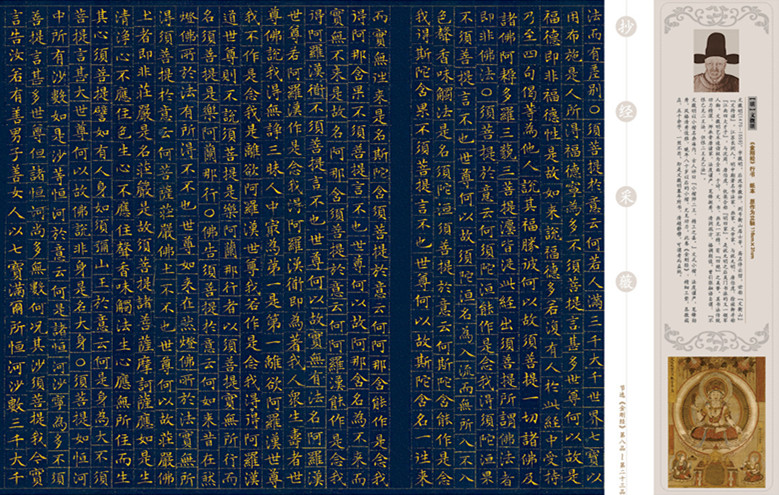 【明】文徵明
抄经采薇
节选《金刚经》第八品—第二十三品
法而有差別○須菩提於意云何若人滿三千大千世界七寶以
用布施是人所得福德寧為多不須菩提言甚多世尊何以故是
福德即非福德性是故如來說福德多若復有人於此經中受持
乃至四句偈等為他人說其福勝彼何以故須菩提一切諸佛及
諸佛阿耨多羅三藐三菩提灋皆從此經出須菩提所謂佛法者
即非佛法○須菩提於意云何須陀洹能作是念我得須陀洹果
不須菩提言不也世尊何以故須陀洹名為入流而無所入不入
色聲香味觸法是名須陀洹須菩提於意云何斯陀含能作是念
我得斯陀含果不須菩提言不也世尊何以故斯陀含名一往來
而實無往來是名斯陀含須菩提於意云何阿那含能作是念我
得阿那含果不須菩提言不也世尊何以故阿那含名為不來而
實無不來是故名阿那含須菩提於意云何阿羅漢能作是念我
得阿羅漢道不須菩提言不也世尊何以故實無有法名阿羅漢
世尊若阿羅漢作是念我得阿羅漢道即為著我人眾生壽者世
尊佛說我得無諍三昧人中最為第一是第一離欲阿羅漢世尊
我不作是念我是離欲阿羅漢世尊我若作是念我得阿羅漢
道世尊則不說須菩提是樂阿蘭那行者以須菩提實無所行而
名須菩提是樂阿蘭那行○佛告須菩提於意云何如來昔在然
燈佛所於法有所得不不也世尊如來在然燈佛所於法實無所
得須菩提於意云何菩薩莊嚴佛土不不也世尊何以故莊嚴佛
土者即非莊嚴是名莊嚴是故須菩提諸菩薩摩訶薩應如是生
清淨心不應住色生心不應住聲香味觸法生心應無所住而生
其心須菩提譬如有人身如須彌山王於意云何是身為大不須
菩提言甚大世尊何以故佛說非身是名大身○須菩提如恒河
中所有沙數如是沙等恒河於意云何是諸恒河沙寧為多不須
菩提言甚多世尊但諸恒河尚多無數何況其沙須菩提我今實
言告汝若有善男子善女人以七寶滿爾所恒河沙數三千大千